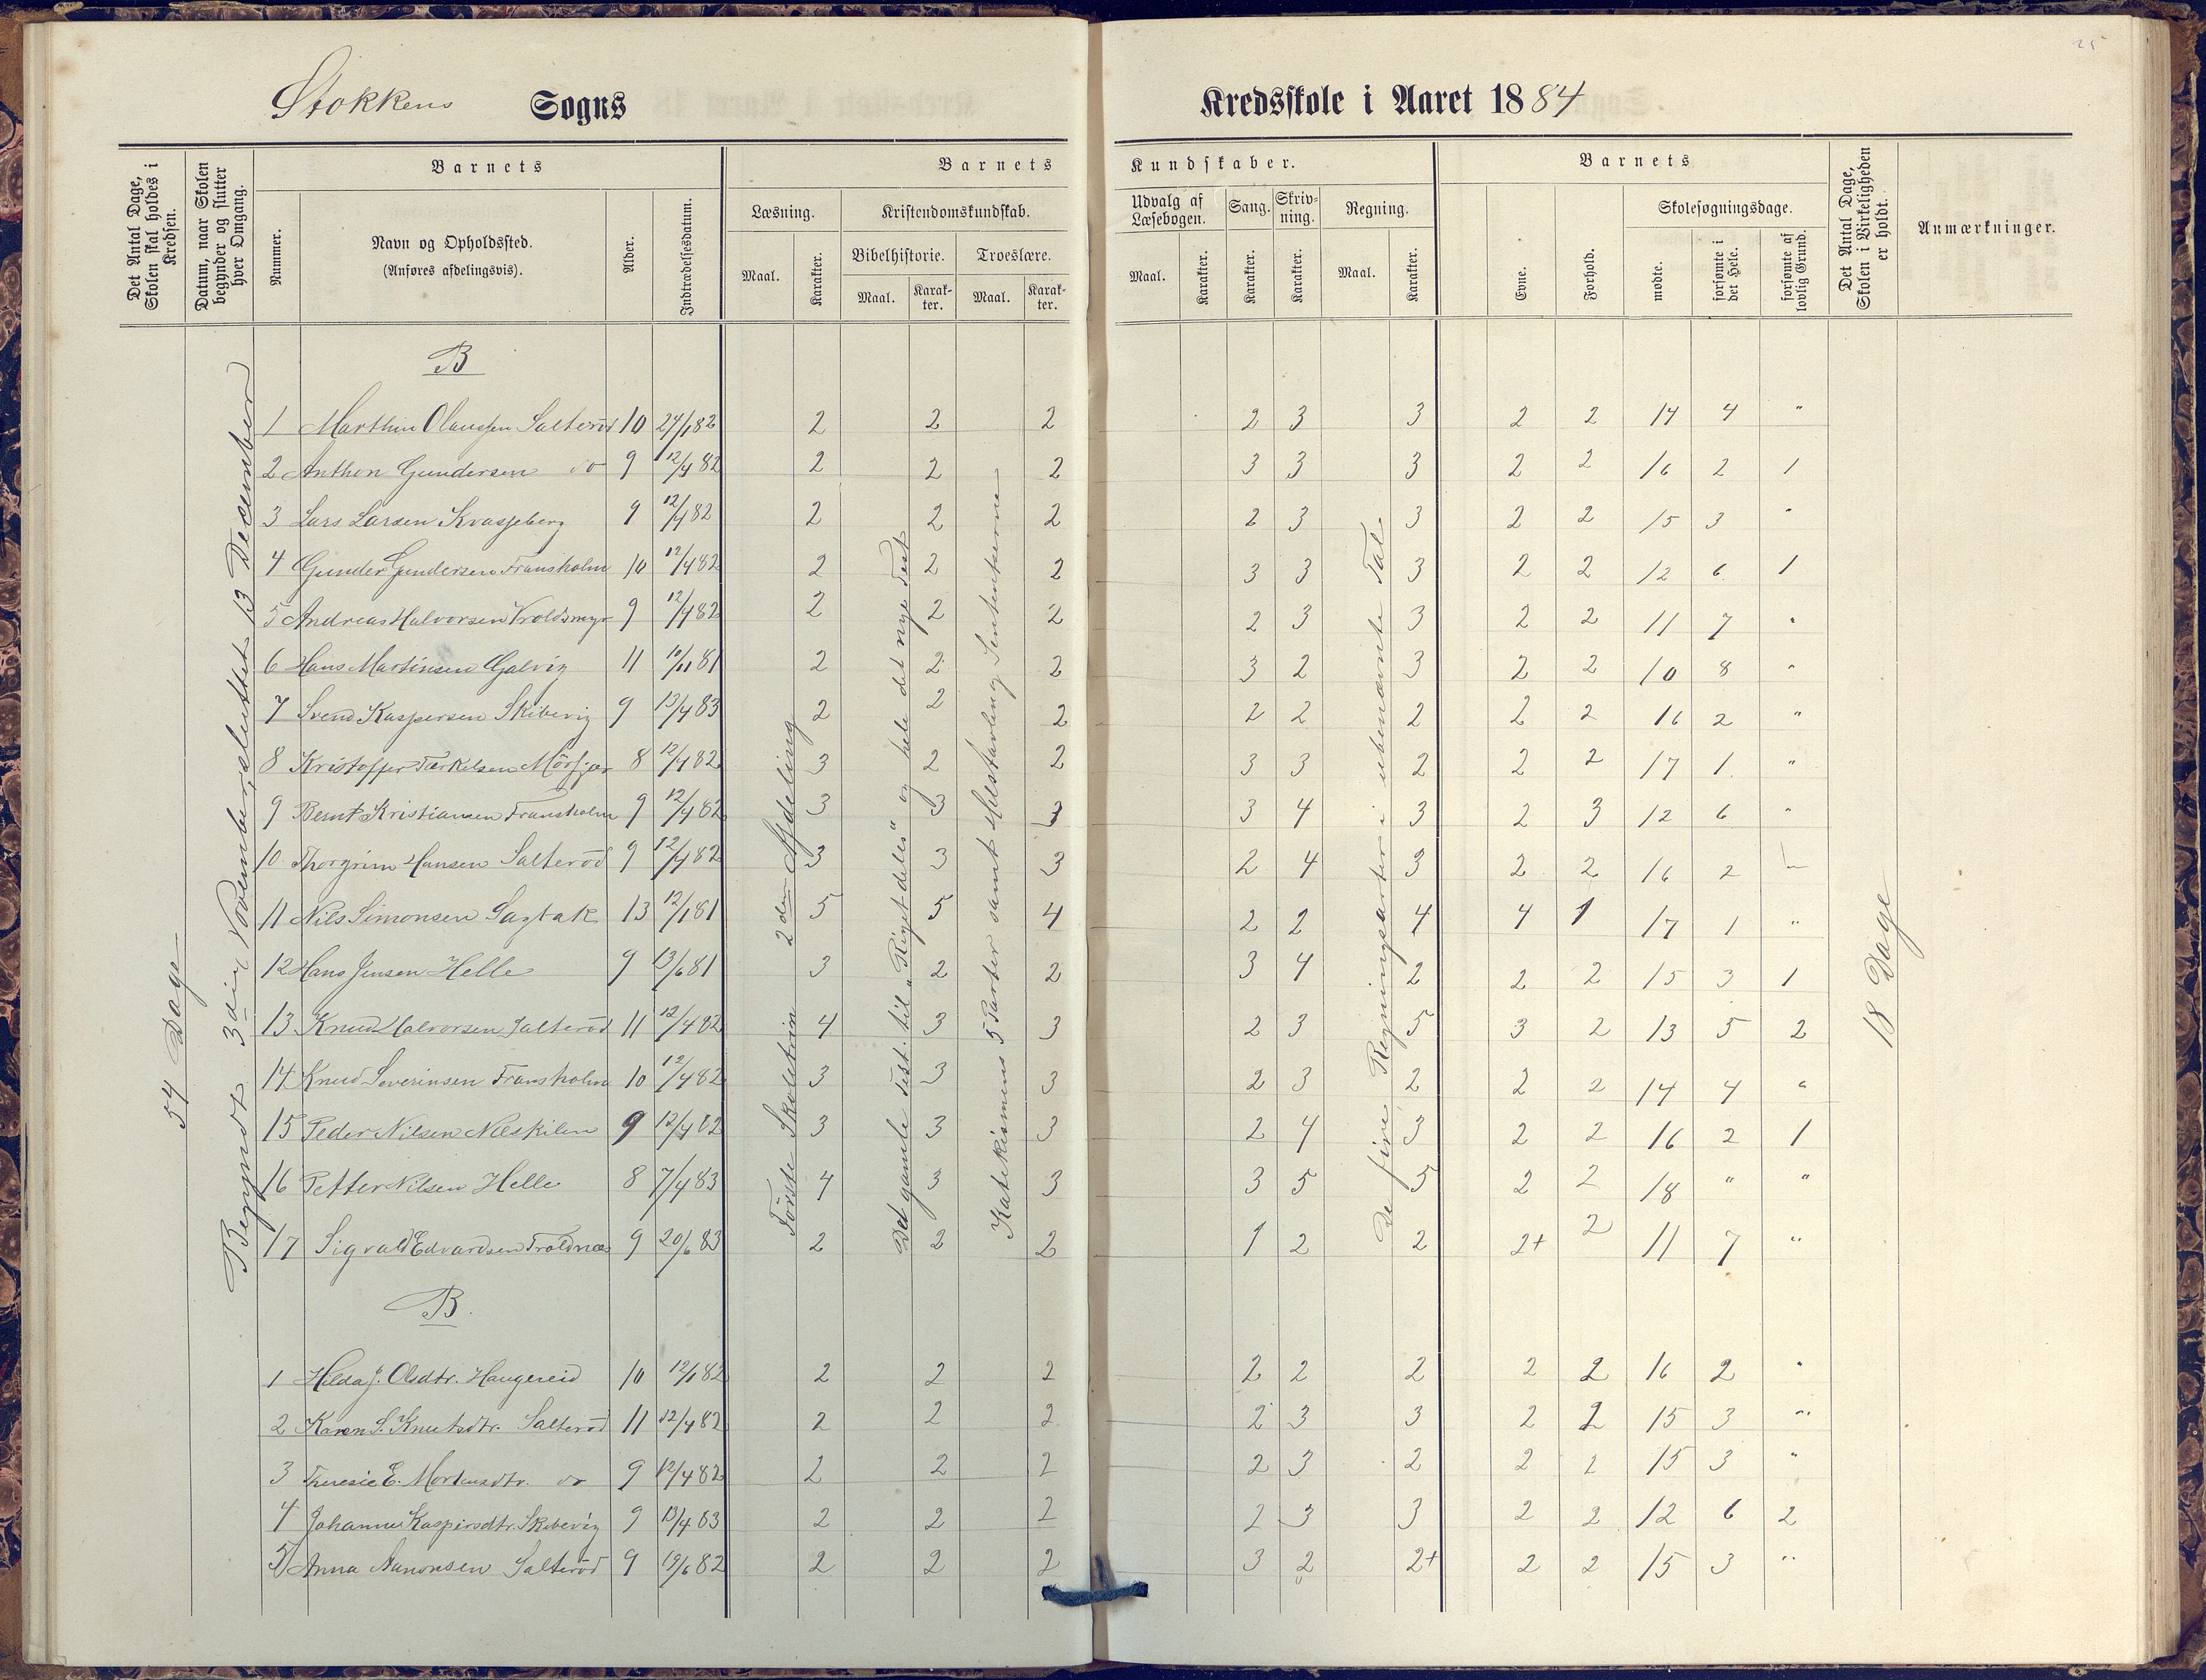 25
Stokkens Sogns Kredsskole i Aaret 1884
Det Antal Dage, Skolen skal holdes i Kredsen.
Datum, naar Skolen begynder og slutter hver Omgang.
Barnets
Nummer.
Navn og Opholdssted.
(Anføres afdelingsvis).
Alder.
Indtrædelsesdatum.
Barnets Kundskaber.
Læsning.
Maal.
Karakter.
Kristendomskundskab.
Bibelhistorie.
Maal.
Karakter.
Troeslære.
Maal.
Karakter.
Udvalg af Læsebogen.
Maal.
Karakter.
Sang.
Karakter.
Skrivning.
Karakter.
Regning.
Maal.
Karakter.
Barnets
Evne.
Forhold.
Skolesøgningsdage.
mødte.
forsømte i det Hele.
forsømte af lovlig Grund.
Det Antal Dage, Skolen i Virkeligheden er holdt.
Anmærkninger.
54 Dage
Begyndt 3die November, sluttet 13 December
Første Skoletrin 2den Afdeling
Det gamle Test. til "Riget deles" og hele det nye Test
Katekismens 5 Parter samt Hilstavling Sentenserne
De fire Regningsarter i ubenævnte Tal
18 Dage
B
1 Marthin Olaussen Salterød 10 24/1 82 2 2 2 2 3 3 2 2 14 4 "
2 Anthon Gundersen do 9 12/4 82 2 2 2 3 3 3 2 2 16 2 1
3 Lars Larsen Kvasjeberg 9 12/4 82 2 2 2 2 3 3 2 2 15 3 "
4 Gunder Gundersen Fransholm 10 12/4 82 2 2 2 3 3 3 2 2 12 6 1
5 Andreas Halvorsen Voldsmyr 9 12/4 82 2 2 2 2 3 3 2 2 11 7 "
6 Hans Martinsen Galvig 11 10/11 81 2 2 2 3 2 3 2 2 10 8 "
7 Svend Kaspersen Skibevig 9 13/4 83 2 2 2 2 2 2 2 2 16 2 "
8 Kristoffer Tærkelsen Mörfjær 8 12/4 82 3 2 2 3 3 2 2 2 17 1 "
9 Bernt Kristiansen Fransholm 9 12/4 82 3 3 3 3 4 3 2 3 12 6 "
10 Thorgrim Hansen Salterød 9 12/4 82 3 3 3 2 4 3 2 2 16 2
11 Nils Simonsen Sagbak 13 12/1 81 5 5 4 2 2 4 4 1 17 1 "
12 Hans Jensen Helle 9 13/6 81 3 2 2 3 4 2 2 2 15 3 1
13 Knud Halvorsen Salterød 11 12/4 82 4 3 3 2 3 5 3 2 13 5 2
14 Knud Severinsen Fransholm 10 12/4 82 3 3 3 2 3 2 2 2 14 4 "
15 Peder Nilsen Næskilen 9 12/4 82 3 3 3 2 4 3 2 2 16 2 1
16 Petter Nilsen Helle 8 7/4 83 4 3 3 3 5 5 2 2 18 " "
17 Sigvald Edvardsen Troldnæs 9 20/6 83 2 2 2 1 2 2 2+ 2 11 7 "
B.
1 Hilda J. Olsdtr. Haugereid 10 12/1 82 2 2 2 2 2 2 2 2 16 2 "
2 Karen S. Knutsdtr. Salterød 11 12/4 82 2 2 2 2 3 3 2 2 15 3 "
3 Theresie E. Mortensdtr. do 9 12/4 82 2 2 2 2 3 2 2 2 15 3 "
4 Johanne Kaspersdtr. Skibevig 9 13/4 83 2 2 2 2 3 3 2 2 12 6 2
5 Anna Aanonsen Salterød 9 19/6 82 2 2 2 3 2 2+ 2 2 15 3 "